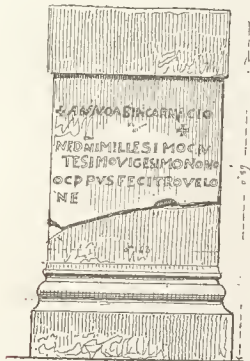 + ANNO AB INCARNACIO
NE DNI MILLESIMO CIV
TESIMO VIGESIMO NONO
OC OPUS FECIT ROVELO
NE